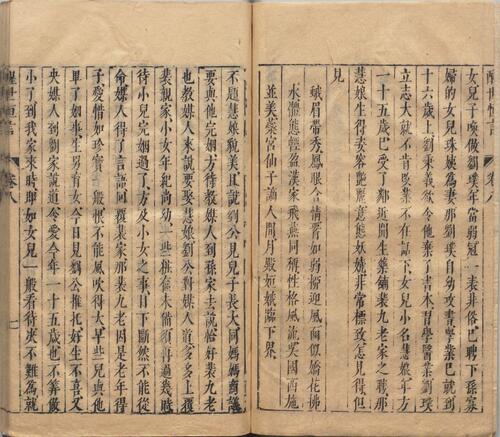 醒世恒言 卷八
女兒子喚做劉璞年當弱冠一表非俗已聘下孫寡
婦的女兒珠姨為妻那劉璞自幼攻書學業已就到
十六歲上劉秉義欲令他棄了書本習學醫業劉璞
立志大就不肯改業不在話下女兒小名慧娘年方
一十五歲已受了鄰近開生藥鋪裴九老家之聘那
慧娘生得姿容艷麗意態妖嬈非常標致怎見得但
見
蛾眉帶秀鳳眼含情腰如弱柳迎風面似嬌花拂
水體態輕盈漢家飛燕同稱性格風流吳國西施
並美蕊宮仙子謫人間月殿姮娥臨下界
不題慧娘貌美且說劉公見兒子長大同媽媽商議
要與他完姻方待教媒人到孫家去說恰好裴九老
也教媒人來說要娶慧娘劉公對媒人道多多上覆
裴親家小女年紀尚幼一些粧奩未備須再過幾時
待小兒完姻過了方及小女之事目下斷然不能從
命媒人得了言語回覆裴家那裴九老因是老年得
子愛惜如珍寶一般恨不能風吹得大早些兒與他
畢了姻事生男育女今日見劉公推托好生不喜又
央媒人到劉家說道令愛今年一十五歲也不算做
小了到我家來時即如女兒一般看待決不難為就
醒世恒言 卷八 一